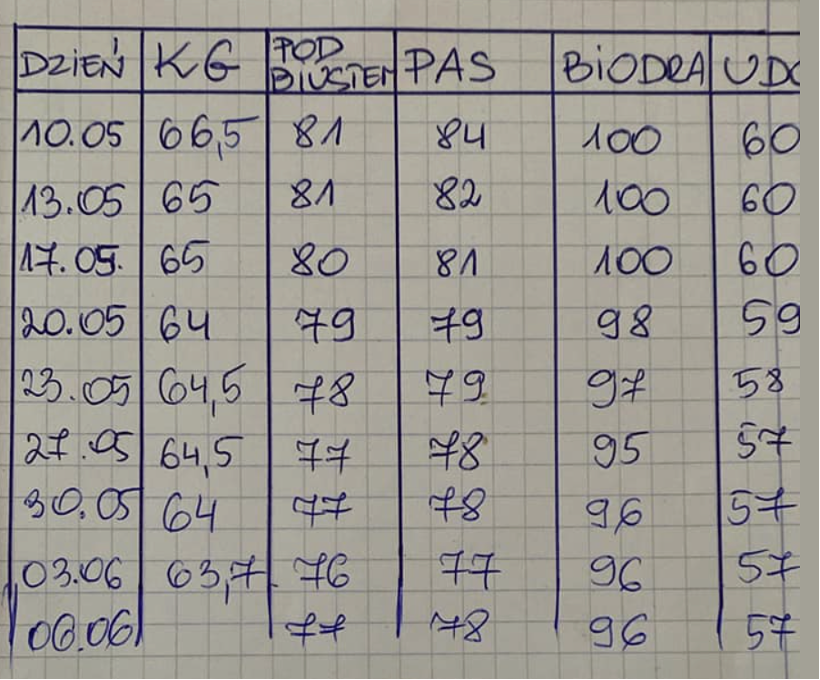 DZIEŃ KG POD BIUSTEM PAS BIODRA UDO
10.05 66,5 81 84 100 60
13.05 65 81 82 100 60
17.05. 65 80 81 100 60
20.05 64 79 79 98 59
23.05 64,5 78 79 97 58
27.05 64,5 77 78 95 57
30.05 64 77 78 96 57
03.06 63,7 76 77 96 57
06.06 77 78 96 57